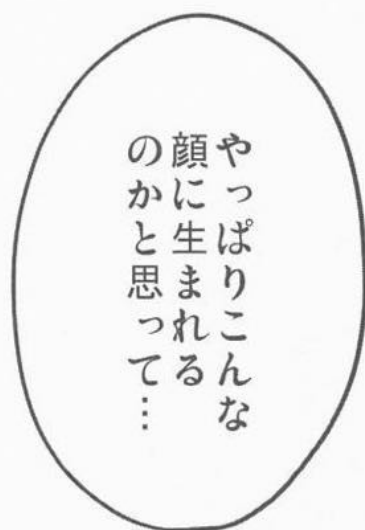 やっぱりこんな
顔に生まれる
のかと思って…